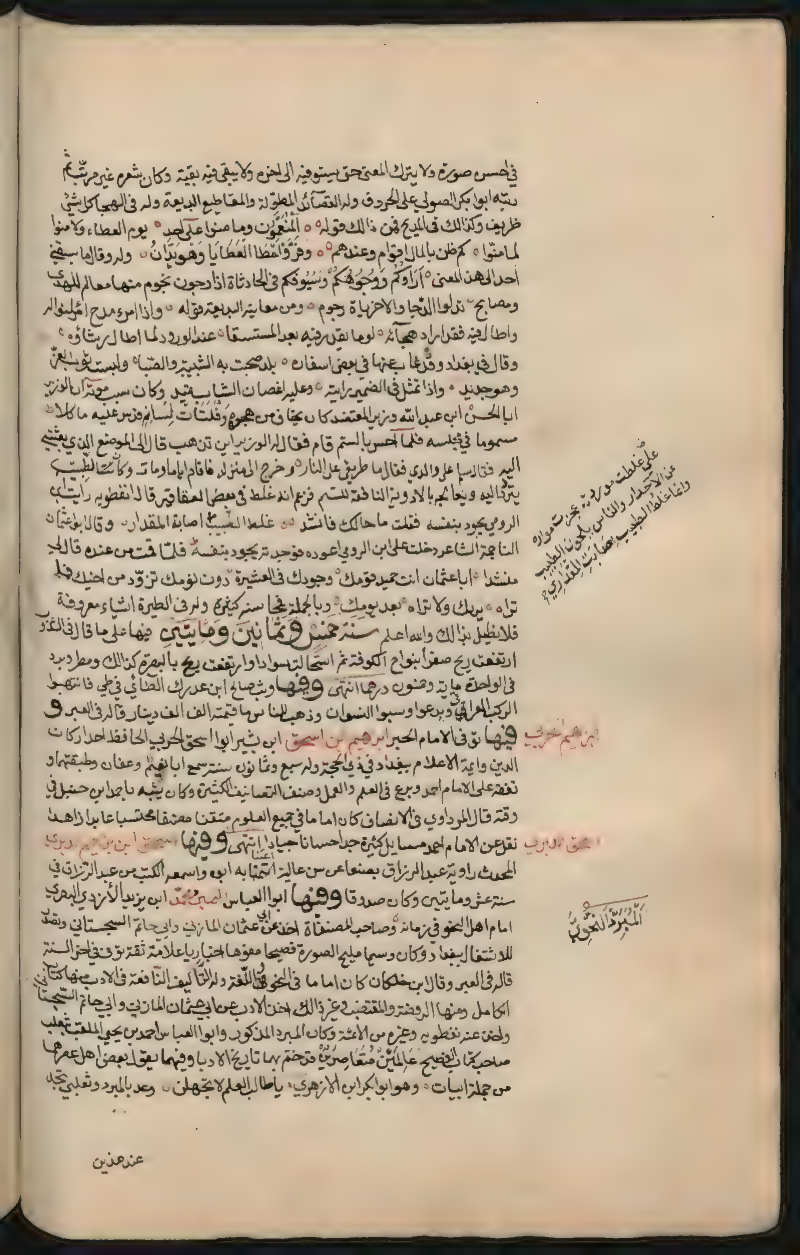 في احسن صورة ولا يترك المعنى حتى يستوفيه الى اخره ولا يبقى فيه بقية وكان شعره غير مرتب ثم
رتبه ابوا بكر الصولي على الحروف وله القصائد المطولة والمقاطيع البديعة وله في الهجا كل شئ
ظريف وكذالك في المديح فمن ذالك قوله المنعمون وما منوا على احد يوم العطاء ولا منوا
لما منوا كم ظن بالمال اقوام وعندهم وفر واعطا العطايا وهو يدان وله وقال ما سبقني
احد الى هذا المعنى آراؤكم ووجوهكم وسيوفكم في الحادثاة اذا دجون نجوم منها معالم للهدى
ومصابح تجلوا الدجا والاخرياة رجوم ومن معانيه البديعة قوله واذا امرء مدح امرا لنواله
واطال فيه فقد اراد هجآئه لو ما يقدر فيه بعد المستسقا عند الورود لما اطال رشاؤه
وقال في بغداد وقد غاب عنها في بعض اسفاره بلد صحبت به الشبيبة والصبا ولبست ثوب العز
وهو جديد واذا تمثل في الضمير رايته وعليه اغصان الشباب تميد وكان سبب موته ان الوزير
ابا الحسن ابن عبد الله وزير المعتضد كان يخاف من هجوه وفلتات لسانه فدس عليه ماكلا
مسموما في مجلسه فلما احس بالسم قام فقال له الوزير اين تذهب قال الى الموضع الذي بعثتني
اليه فقال سلم على والدي فقال ما طريقي على النار وخرج الى منزله فاقام اياما ومات وكان الطبيب
يتردد اليه ويعالجه بالادوية النافعة للسم فزعم انه غلط في بعض العقاقير قال نفطويه رايت ابن
الرومي يجود بنفسه فقلت ما حالك فانشد غلط الطبيب اصابة المقدار وقال ابو عثمان
الناجم الشاعر دخلت على ابن الرومي اعوده فوجدته يجود بنفسه فلما قمت من عنده قال لي
منشدا ابا عثمان انت حميد قومك وجودك في العشيرة دون لومك تزود من اخيك فما
تراه يراك ولا تراه بعد يومك وبالجملة فمحاسنه كثيرة وله في الطيرة اشياء معروفة
فلا نطيل بذالك والله اعلم سنة خمس وثمانين ومايتين فيها على ما قال في الشذور
ارتفعت ريح صفرا بنواح الكوفة ثم استحالت سوادا وارتفعت ريح بالبصرة كذالك ومطر وبرد
في الواحدة ماية وخمسون درهما انتهى وفيها وثب صالح ابن مدرك الطائي في طي فانتهبوا
الركب العراقي وبدعوا وسبوا النسوان وذهب للناس ما قيمته الف الف دينار قاله في العبر و
فيها توفي الامام الحبر ابرهيم بن اسحق ابن بشير ابوا اسحق الحربي الحافظ احد اركان
الدين واية الاعلام ببغداد في ذي الحجة وله سبع وثمانون سنة سمع ابا نعيم وعفان وطبقتهما و
تفقه على الامام احمد وبرع في العلم والعمل وصنف التصانيف الكثيرة وكان يشبه باحمد ابن حنبل في
وقته قال المرداوي في الانصاف كان اماما في جميع العلوم متقنا مصنفا محتسبا عابدا زاهدا
نقل عن الامام احمد مسايل كثيرة جدا حسانا جيادا انتهى وفيها اسحق ابن ابرهيم الدبري
المحدث راوية عبد الرزاق بصنعا عن سن عالية اعتنا به ابوه واسمعه الكتب من عبد الرزاق في
سنة عشر ومايتين وكان صدوقا وفيها ابو العباس المبرد محمد ابن يزيد الازدي البصري
امام اهل النحو في زمانه وصاحب المصنفاة اخذ عن ابي عثمان المازني وابي حاتم السجستاني وتصدر
للاشتغال ببغداد وكان وسيما مليح الصورة فصيحا مفوها اخباريا علامة ثقة توفي في اخر السنة
قاله في العبر وقال ابن خلكان كان اماما في النحو واللغة وله التآليف النافعة في الادب منها كتاب
الكامل ومنها الروضة والمقتضب وغير ذالك اخذ الادب عن ابي عثمان المازني وابي حاتم السجستاني
واخذ عنه نفطويه وغيره من الائمة وكان المبرد المذكور وابوا العباس احمد بن يحيى الملقب بثعلب
صاحب كتاب الفصيح عالمين متعاصرين قد ختم بهما تاريخ الادبا وفيهما يقول بعض اهل عصرهما
من جملة ابيات وهو ابوا بكر ابن الازهري يا طالب العلم لا تجهلن وعد بالمبرد وثعلب تجد
عند هذين
على غلطت موردة عجزت موارده
عن الاصدار والناس يلحون الطبيب
وانما غلط الطبيب اصابة المقدار
ابرهيم الحربي
اسحق الدبري
المبرد النحوي